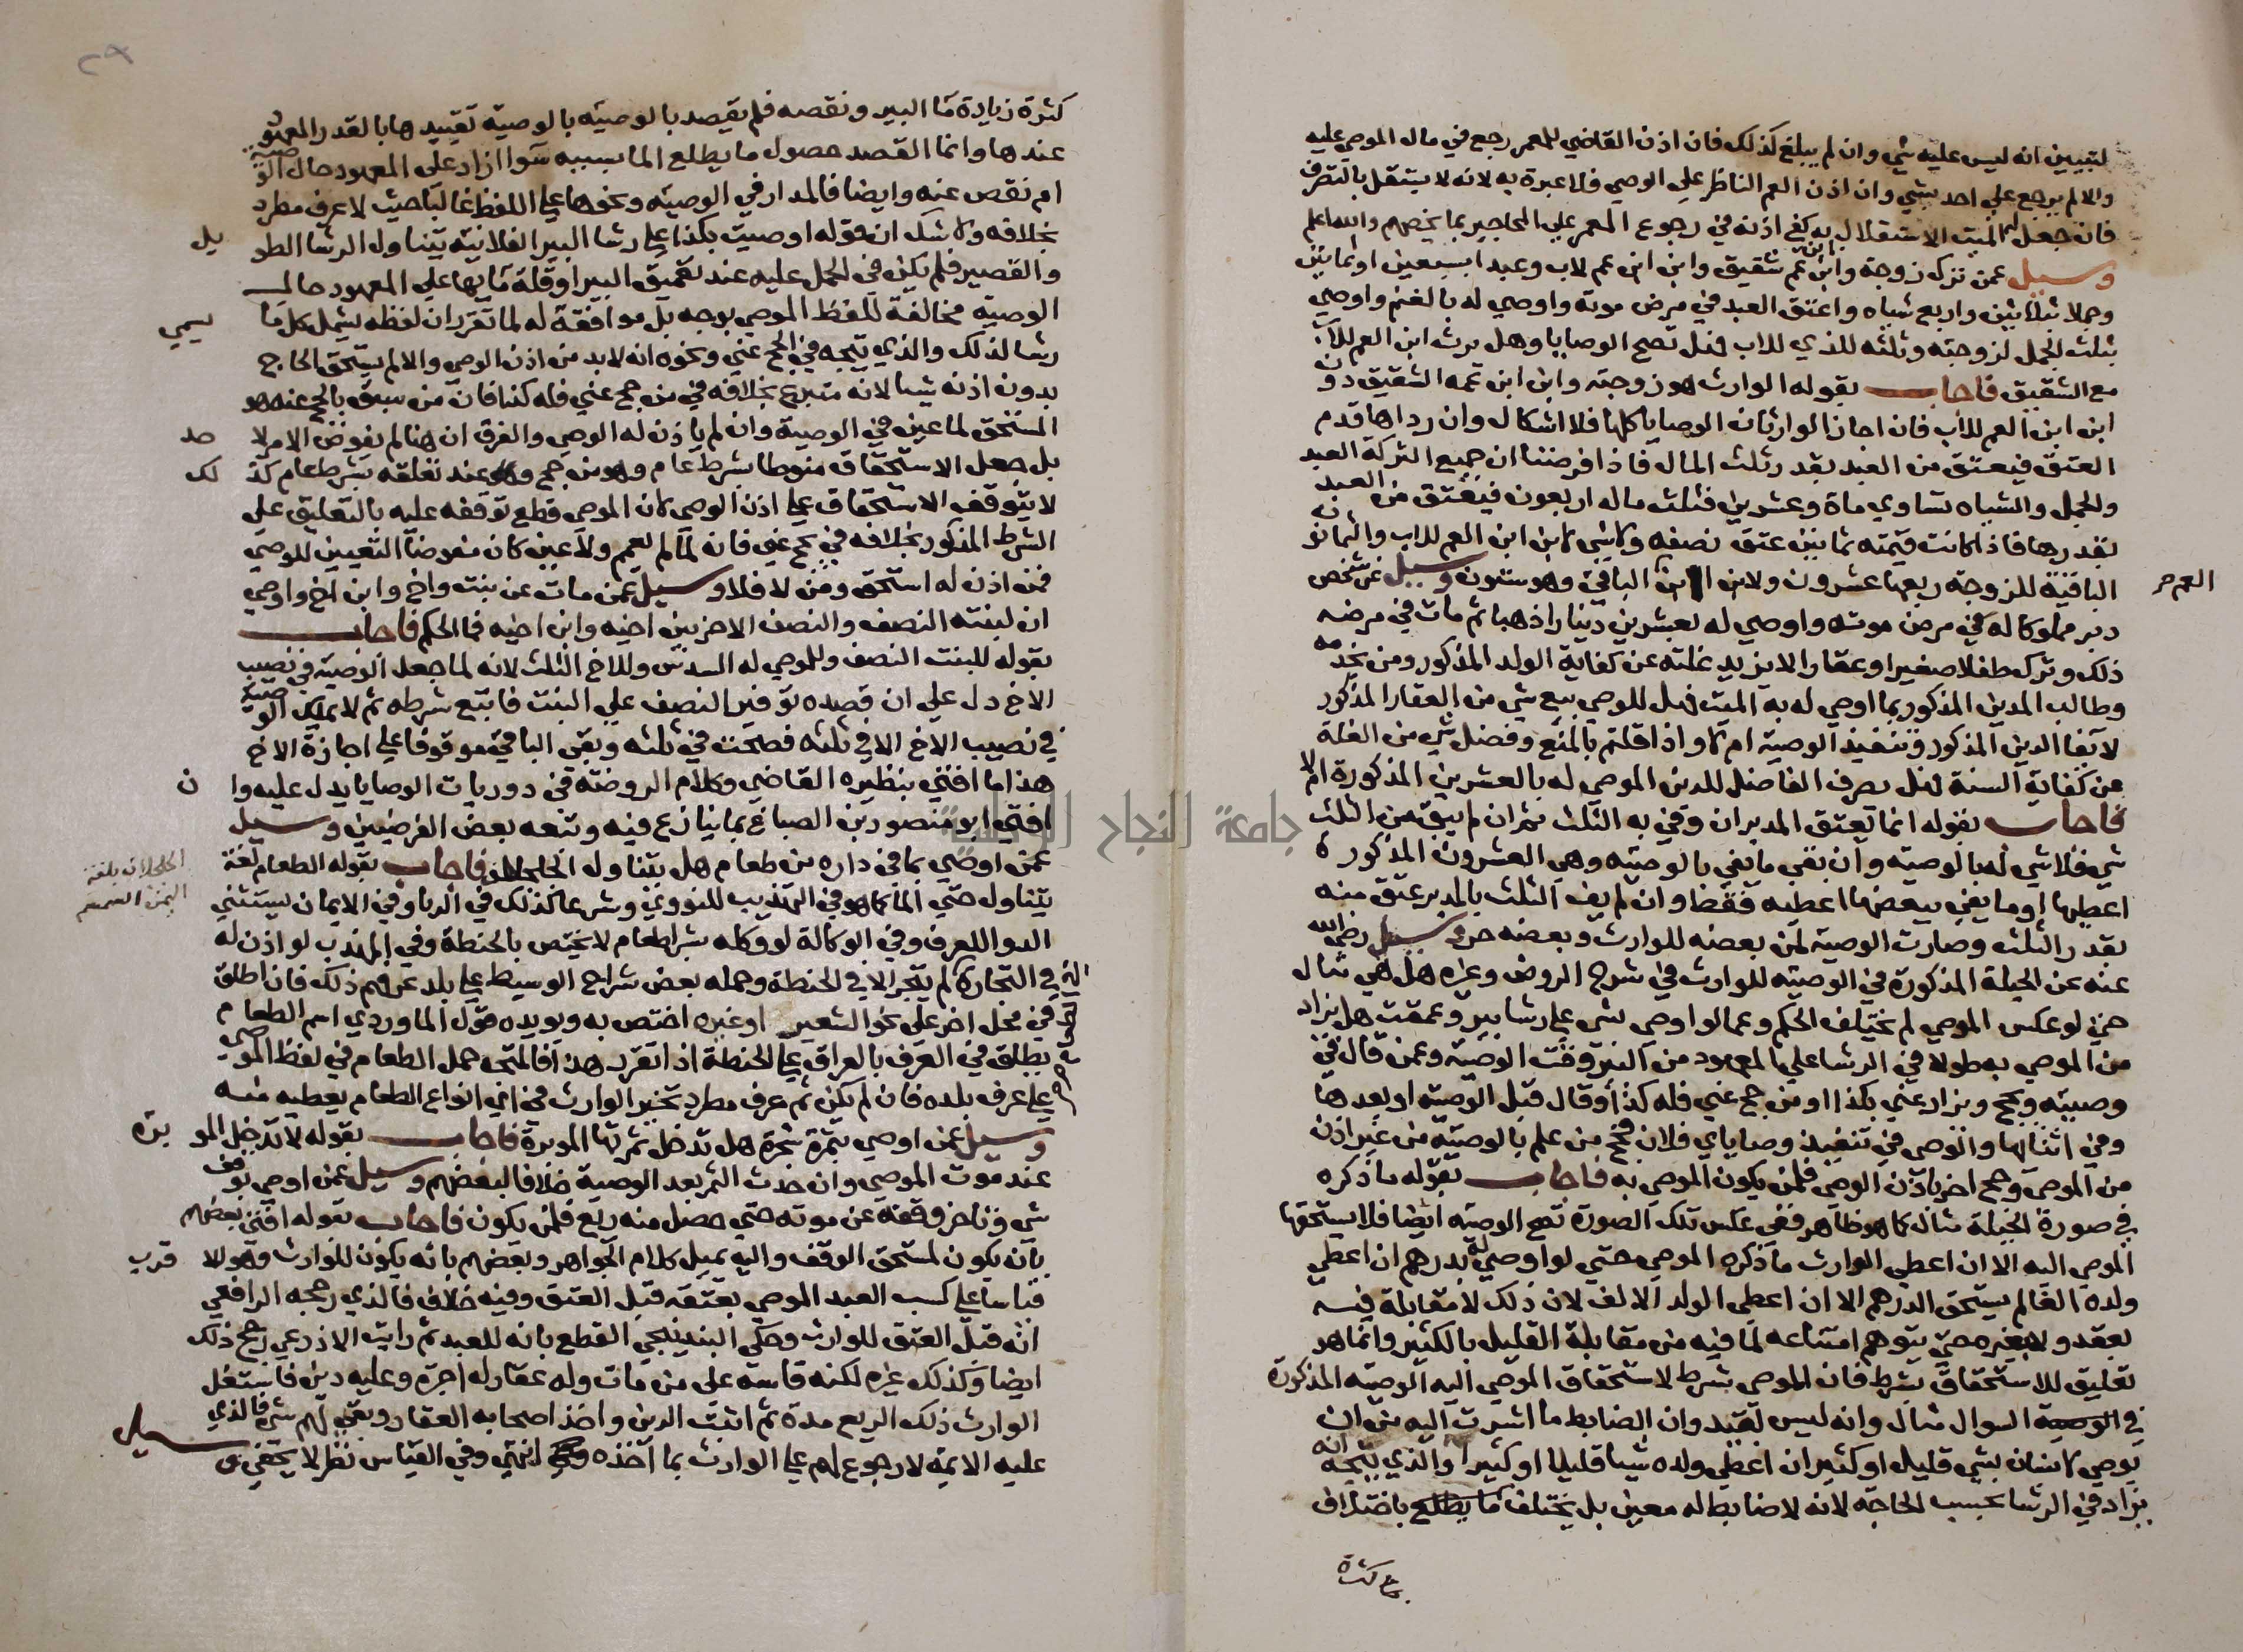 لتبيين انه ليس عليه شي وان لم يبلغ كذلك فان اذن القاضي للعمر رجع في مال الموصي عليه
والا لم يرجع علي احد بشي وان اذن العم الناظر علي الوصي فلا عبرة به لانه لا يستقل بالتصرف
فان جعل له الميت الاستقلال به كفي اذنه في رجوع المعمر علي المحاجير بما يخصهم والله اعلم
وسيل عمن ترك زوجة وابن ابن عم شقيق وابن ابن عم لاب وعبدا بسبعين او ثمانين
وجملا بثلاثين واربع شياه واعتق العبد في مرض موته واوصي له بالغنم واوصي
بثلث الجمل لزوجته وثلثه للذي للاب فهل تصح الوصايا وهل يرث ابن العم للاب
مع الشقيق فاجاب بقوله الوارث هو زوجته وابن ابن عمه الشقيق دون
ابن ابن العم للاب فان اجاز الوارثان الوصايا كلها فلا اشكال وان رداها قدم
العتق فيعتق من العبد بقدر ثلث المال فاذا فرضنا ان جميع التركة العبد
والجمل والشياه تساوي ماة وعشرين فثلث ماله اربعون فيعتق من العبد
بقدرها فاذا كانت قيمته ثمانين عتق نصفه ولا شي لابن ابن العم للاب والثمانون
الباقية للزوجة ربعها عشرون ولابن ابن الباقي وهو ستون وسيل عن شخص
العم ح
دبر مملوكا له في مرض موته واوصي له بعشرين دينارا ذهبا ثم مات في مرضه
ذلك وترك طفلا صغيرا وعقارا لا يزيد غلته عن كفاية الولد المذكور ومن يخدمه
وطالب المدين المذكور بما اوصي له به الميت فهل للوصي بيع شي من العقار المذكور
لايفا الدين المذكور وتنفيذ الوصية ام لا واذا قلتم بالمنع وفضل شي من الغلة
عن كفاية السنة فهل يصرف الفاضل للدين الموصي له بالعشرين المذكورة ام لا
فاجاب بقوله انما يعتق المدبر ان وفي به الثلث ثم ان لم يبق من الثلث
شي فلا شي له بالوصية وان بقي ما يفي بالوصية وهي العشرون المذكورة
اعطيها او ما يفي ببعضها اعطيه فقط وان لم يف الثلث بالمدبر عتق منه
بقدر الثلث وصارت الوصية لمن بعضه للوارث وبعضه حر وسيل رضي الله
عنه عن الحيلة المذكورة في الوصية للوارث في شرح الروض وغيره هل هي مثال
حتي لو عكس الموصي لم يختلف الحكم وعما لو اوصي بشي علي رشا بير وعمقت هل يزاد
من الموصي به طولا في الرشا علي المعهود من البير وقت الوصية وعمن قال في
وصيته ويحج ويزار عني بكذا او من حج عني فله كذا وقال قبل الوصية او بعدها
وفي اثنائها والوصي في تنفيذ وصاياي فلان فحج من علم بالوصية من غير اذن
من الموصي وحج اخر باذن الوصي فلمن يكون الموصي به فاجاب بقوله ما ذكره
في صورة الحيلة مثال كما هو ظاهر ففي عكس تلك الصورة تصح الوصية ايضا فلا يستحقها
الموصي اليه الا ان اعطي الوارث ما ذكره الموصي حتي لو اوصي له بدرهم ان اعطي
ولده الفا لم يستحق الدرهم الا ان اعطي الولد الالف لان ذلك لا مقابلة فيه
بعقد ولا بغيره حتي يتوهم امتناعه لما فيه من مقابلة القليل بالكثير وانما هو
تعليق للاستحقاق بشرط فان الموصي بشرط لاستحقاق الموصي اليه الوصية المذكورة
في السوال مثال وانه ليس بقيد وان الضابط ما اشرت اليه من ان
يوصي لانسان بشي قليل او كثير ان اعطي ولده شيا قليلا او كثيرا والذي يتجه انه
يزاد في الرشا بحسب الحاجة لانه لا ضابط له معين بل يختلف باختلاف
كثرة
كثرة زيادة ما البير ونقصه فلم يقصد بالوصية بالوصية تقييدها بالقدر المعهود
عندها وانما القصد حصول ما يطلع الما بسببه سوا ازاد علي المعهود حال الوصية
ام نقص عنه وايضا فالمدار في الوصية ونحوها علي اللفظ غالبا حيث لا عرف مطرد
بخلافه ولا شك ان قوله اوصيت بكذا علي رشا البير الفلانية يتناول الرشا الطويل
والقصير فلم يكن في الحمل عليه عند تعميق البير او قلة مايها علي المعهود حال
الوصية مخالفة للفظ الموصي بوجه بل موافقة له لما تقرر ان لفظه يشمل كل ما يسمي
رشا لذلك والذي يتجه في الحج عني ونحوه انه لابد من اذن الوصي والا لم يستحق الحاج
بدون اذنه شيا لانه متبرع بخلافه في من حج عني فله كذا فان من سبق بالحج عنه هو
المستحق لما عين في الوصية وان لم ياذن له الوصي والفرق ان هنا لم يفوض الامر لاحد
بل جعل الاستحقاق منوطا بشرط عام وهو من حج وعند تعلقه بشرط عام كذلك
لا يتوقف الاستحقاق علي اذن الوصي لان الموصي قطع توقفه عليه بالتعليق علي
الشرط المذكور بخلافه في حج عني فانه لما لم يعم ولا عين كان مفوضا التعيين للوصي
فمن اذن له استحق ومن لا فلا وسيل عمن مات عن بنت واخ وابن اخ واوصي
ان لبنته النصف والنصف الاخر بين اخيه وابن اخيه فما الحكم فاجاب
بقوله للبنت النصف وللموصي له السدس وللاخ الثلث لانه لما جعل الوصية في نصيب
الاخ دل علي ان قصده توفير النصف علي البنت فاتبع شرطه ثم لا يملك الوصية
في نصيب الاخ الا في ثلثه فصحت في ثلثه وبقي الباقي موقوفا علي اجازة الاخ
هذا ما افتي بنظيره القاضي وكلام الروضة في دوريات الوصايا يدل عليه وان
افتي ابو منصور بن الصباغ بما ينازع فيه وتبعه بعض الفرضيين وسيل
عمن اوصي بما في داره من طعام هل يتناول الجلجلان فاجاب بقوله الطعام لغة
الجلجلان بلغة
اليمن السمسم
يتناول حتي الما كما هو في التهذيب للنووي وشرعا كذلك في الربا وفي الايمان يستثني
الدوا للعرف وفي الوكالة لو وكله بشرا طعام لا يختص بالحنطة وفي المهذب لو اذن له
في التجارة لم يتجر الا في الحنطة وحمله بعض شراح الوسيط علي بلد عرفهم ذلك فان اطلق
في محل اخر علي نحو الشعير او غيره اختص به ويويده قول الماوردي اسم الطعام
يطلق في العرف بالعراق علي الحنطة اذا تقرر هذا فالمتجه حمل الطعام في لفظ الموصي
علي عرف بلده فان لم يكن ثم عرف مطرد تخير الوارث في اي انواع الطعام يعطيه منه
وسيل عمن اوصي بثمرة شجرة هل تدخل ثمرتها الموبرة فاجاب بقوله لا تدخل الموبرة
عند موت الموصي وان حدث الثمر بعد الوصية خلافا لبعضهم وسيل عمن اوصي بوقف
شي وتاخر وقفه عن موته حتي حصل منه ريع فلمن يكون فاجاب بقوله افتي بعضهم
بانه يكون لمستحق الوقف واليه يميل كلام الجواهر وبعضهم بانه يكون للوارث وهو الاقرب
قياسا علي كسب العبد الموصي بعتقه قبل العتق وفيه خلاف فالذي رجحه الرافعي
انه قبل العتق للوارث وحكي البندنيجي القطع بانه للعبد ثم رايت الاذرعي رجح ذلك
ايضا وكذلك غيره لكنه قاسه علي من مات وله عقار له اجرة وعليه دين فاستغل
الوارث ذلك الريع مدة ثم اثبت الدين واخذ اصحابه العقار وبقي لهم شي فالذي
عليه الايمة لا رجوع لهم علي الوارث بما اخذه انتهي وفي القياس نظر لا يخفي وسيل
جامعة النجاح الوطنية